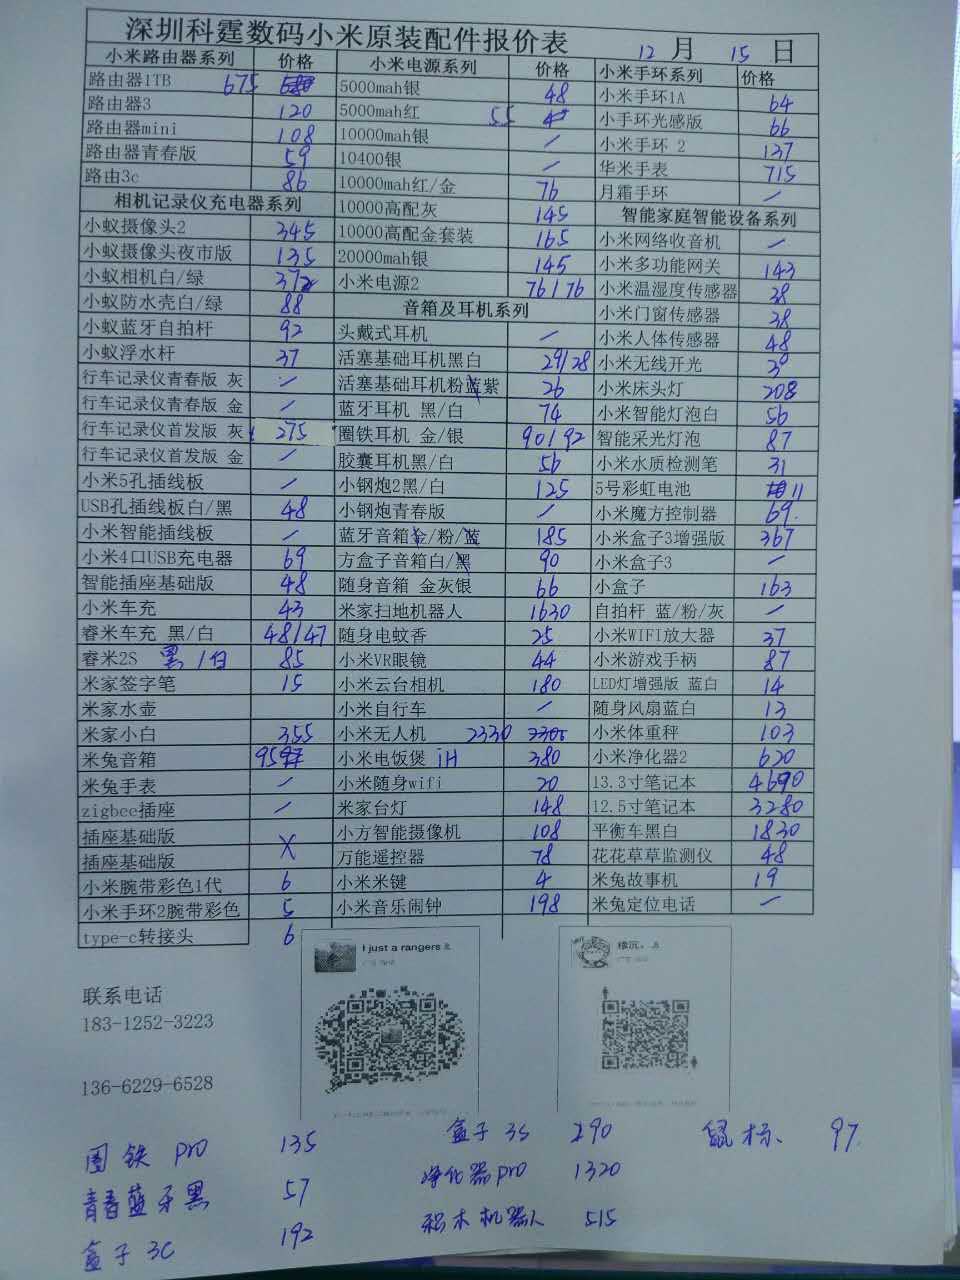 深圳科霆数码小米原装配件报价表 12月 15日
小米路由器系列 价格
路由器1TB 675
路由器3 120
路由器mini 108
路由器青春版 59
路由3c 86
相机记录仪充电器系列
小蚁摄像头2 345
小蚁摄像头夜市版 135
小蚁相机白/绿 372
小蚁防水壳白/绿 88
小蚁蓝牙自拍杆 92
小蚁浮水杆 37
行车记录仪青春版 灰 /
行车记录仪青春版 金 /
行车记录仪首发版 灰 275
行车记录仪首发版 金 /
小米5孔插线板 /
USB孔插线板白/黑 48
小米智能插线板 /
小米4口USB充电器 69
智能插座基础版 48
小米车充 43
睿米车充 黑/白 48/47
睿米2S 黑/白 85
米家签字笔 15
米家水壶
米家小白 355
米兔音箱 95
米兔手表 /
zigbee插座 /
插座基础版 X
插座基础版
小米腕带彩色1代 6
小米手环2腕带彩色 5
type-c转接头 6
小米电源系列 价格
5000mah银 48
5000mah红 55
10000mah银 /
10400银 /
10000mah红/金 76
10000高配灰 145
10000高配金套装 165
20000mah银 145
小米电源2 76/76
音箱及耳机系列
头戴式耳机 /
活塞基础耳机黑白 29/28
活塞基础耳机粉蓝紫 26
蓝牙耳机 黑/白 74
圈铁耳机 金/银 90/92
胶囊耳机黑/白 56
小钢炮2黑/白 125
小钢炮青春版 /
蓝牙音箱金/粉/蓝 185
方盒子音箱白/黑 90
随身音箱 金灰银 66
米家扫地机器人 1630
随身电蚊香 25
小米VR眼镜 44
小米云台相机 180
小米自行车 /
小米无人机 2330
小米电饭煲 iH 380
小米随身wifi 20
米家台灯 148
小方智能摄像机 108
万能遥控器 78
小米米键 4
小米音乐闹钟 198
小米手环系列 价格
小米手环1A 64
小手环光感版 66
小米手环 2 137
华米手表 715
月霜手环 /
智能家庭智能设备系列
小米网络收音机 /
小米多功能网关 143
小米温湿度传感器 38
小米门窗传感器 38
小米人体传感器 48
小米无线开光 39
小米床头灯 208
小米智能灯泡白 56
智能采光灯泡 87
小米水质检测笔 31
5号彩虹电池 11
小米魔方控制器 69
小米盒子3增强版 367
小米盒子3 /
小盒子 163
自拍杆 蓝/粉/灰 /
小米WIFI放大器 37
小米游戏手柄 87
LED灯增强版 蓝白 14
随身风扇蓝白 13
小米体重秤 103
小米净化器2 620
13.3寸笔记本 4690
12.5寸笔记本 3280
平衡车黑白 1830
花花草草监测仪 48
米兔故事机 19
米兔定位电话 /
联系电话
183-1252-3223
136-6229-6528
I just a rangers
缘沉。
圈铁 pro 135
青春蓝牙黑 57
盒子 3C 192
盒子 3S 290
净化器pro 1320
积木机器人 515
鼠标、 97